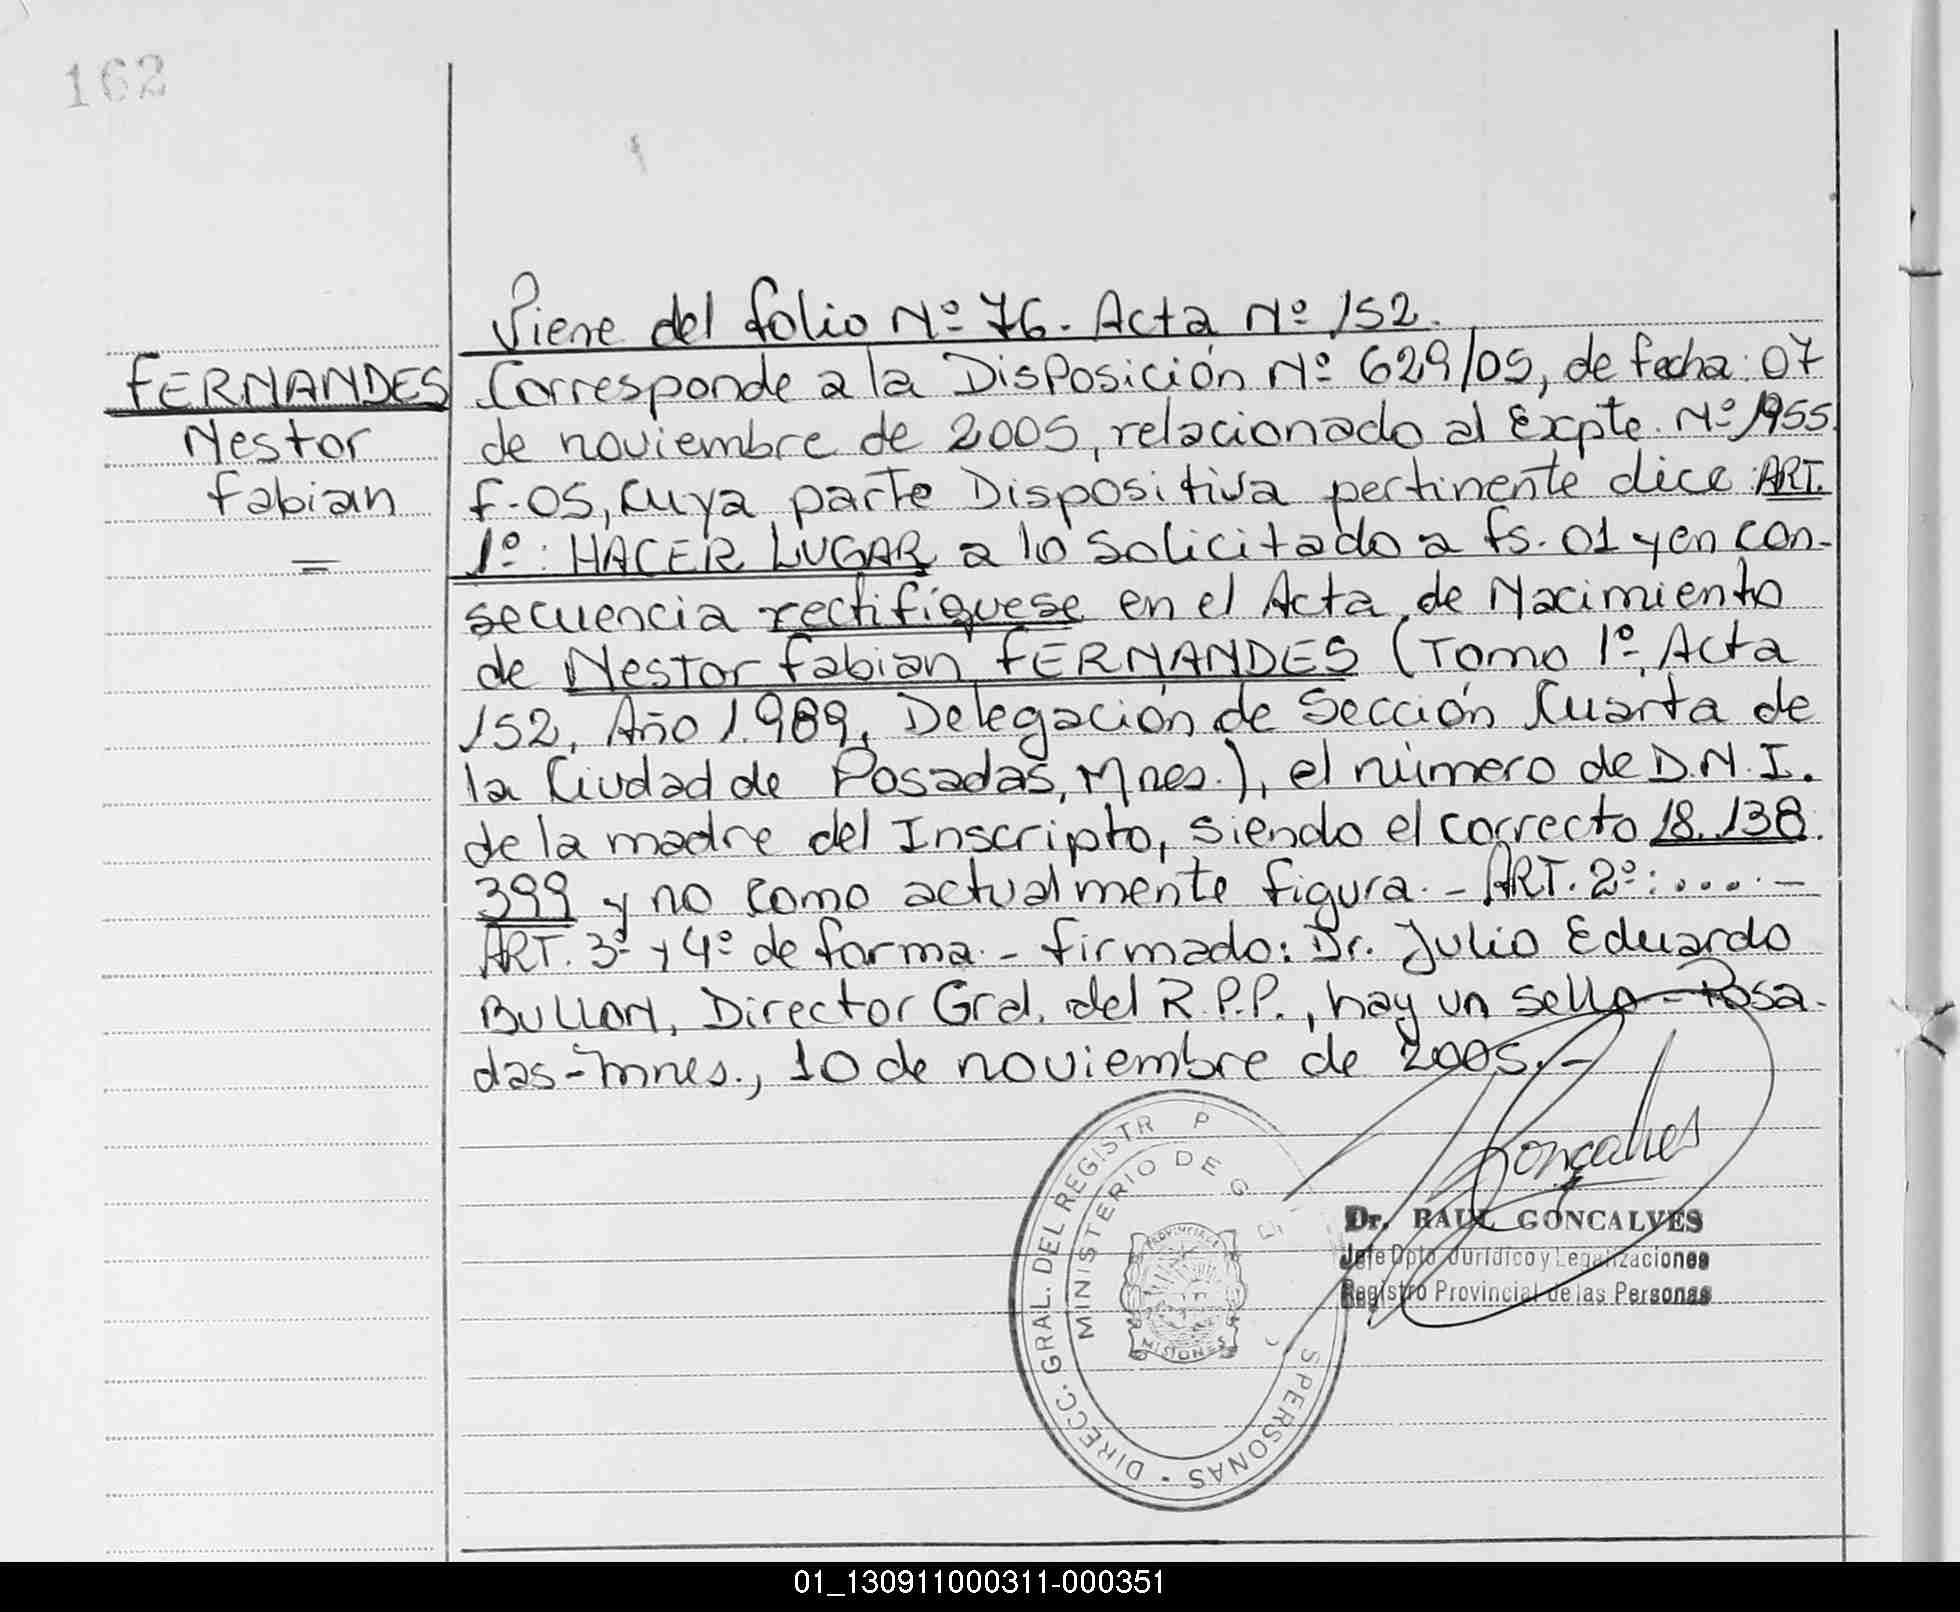 162
Viene del folio Nº 76. Acta Nº 152.
FERNANDES
Nestor
Fabian
Corresponde a la Disposición Nº 629/05, de fecha: 07
de noviembre de 2005, relacionado al Expte. Nº 1955
F-05, cuya parte Dispositiva pertinente dice: ART.
1º: HACER LUGAR a lo solicitado a fs. 01 y en con-
secuencia rectifíquese en el Acta de Nacimiento
de Nestor Fabian FERNANDES (Tomo 1º, Acta
152, Año 1.989, Delegación de Sección Cuarta de
la Ciudad de Posadas, Mnes.), el número de D.N.I.
de la madre del Inscripto, siendo el correcto 18.138.
399 y no como actualmente figura.- ART. 2º:.....-
ART. 3º y 4º de forma.- firmado: Dr. Julio Eduardo
BULLON, Director Gral. del R.P.P., hay un sello-Posa-
das-Mnes., 10 de noviembre de 2005.-
DIRECC. GRAL. DEL REGISTR P S PERSONAS
MINISTERIO DE G
PROVINCIA DE
MISIONES
Gonçalves
Dr. RAUL GONCALVES
Jefe Dpto. Jurídico y Legalizaciones
Registro Provincial de las Personas
01_130911000311-000351